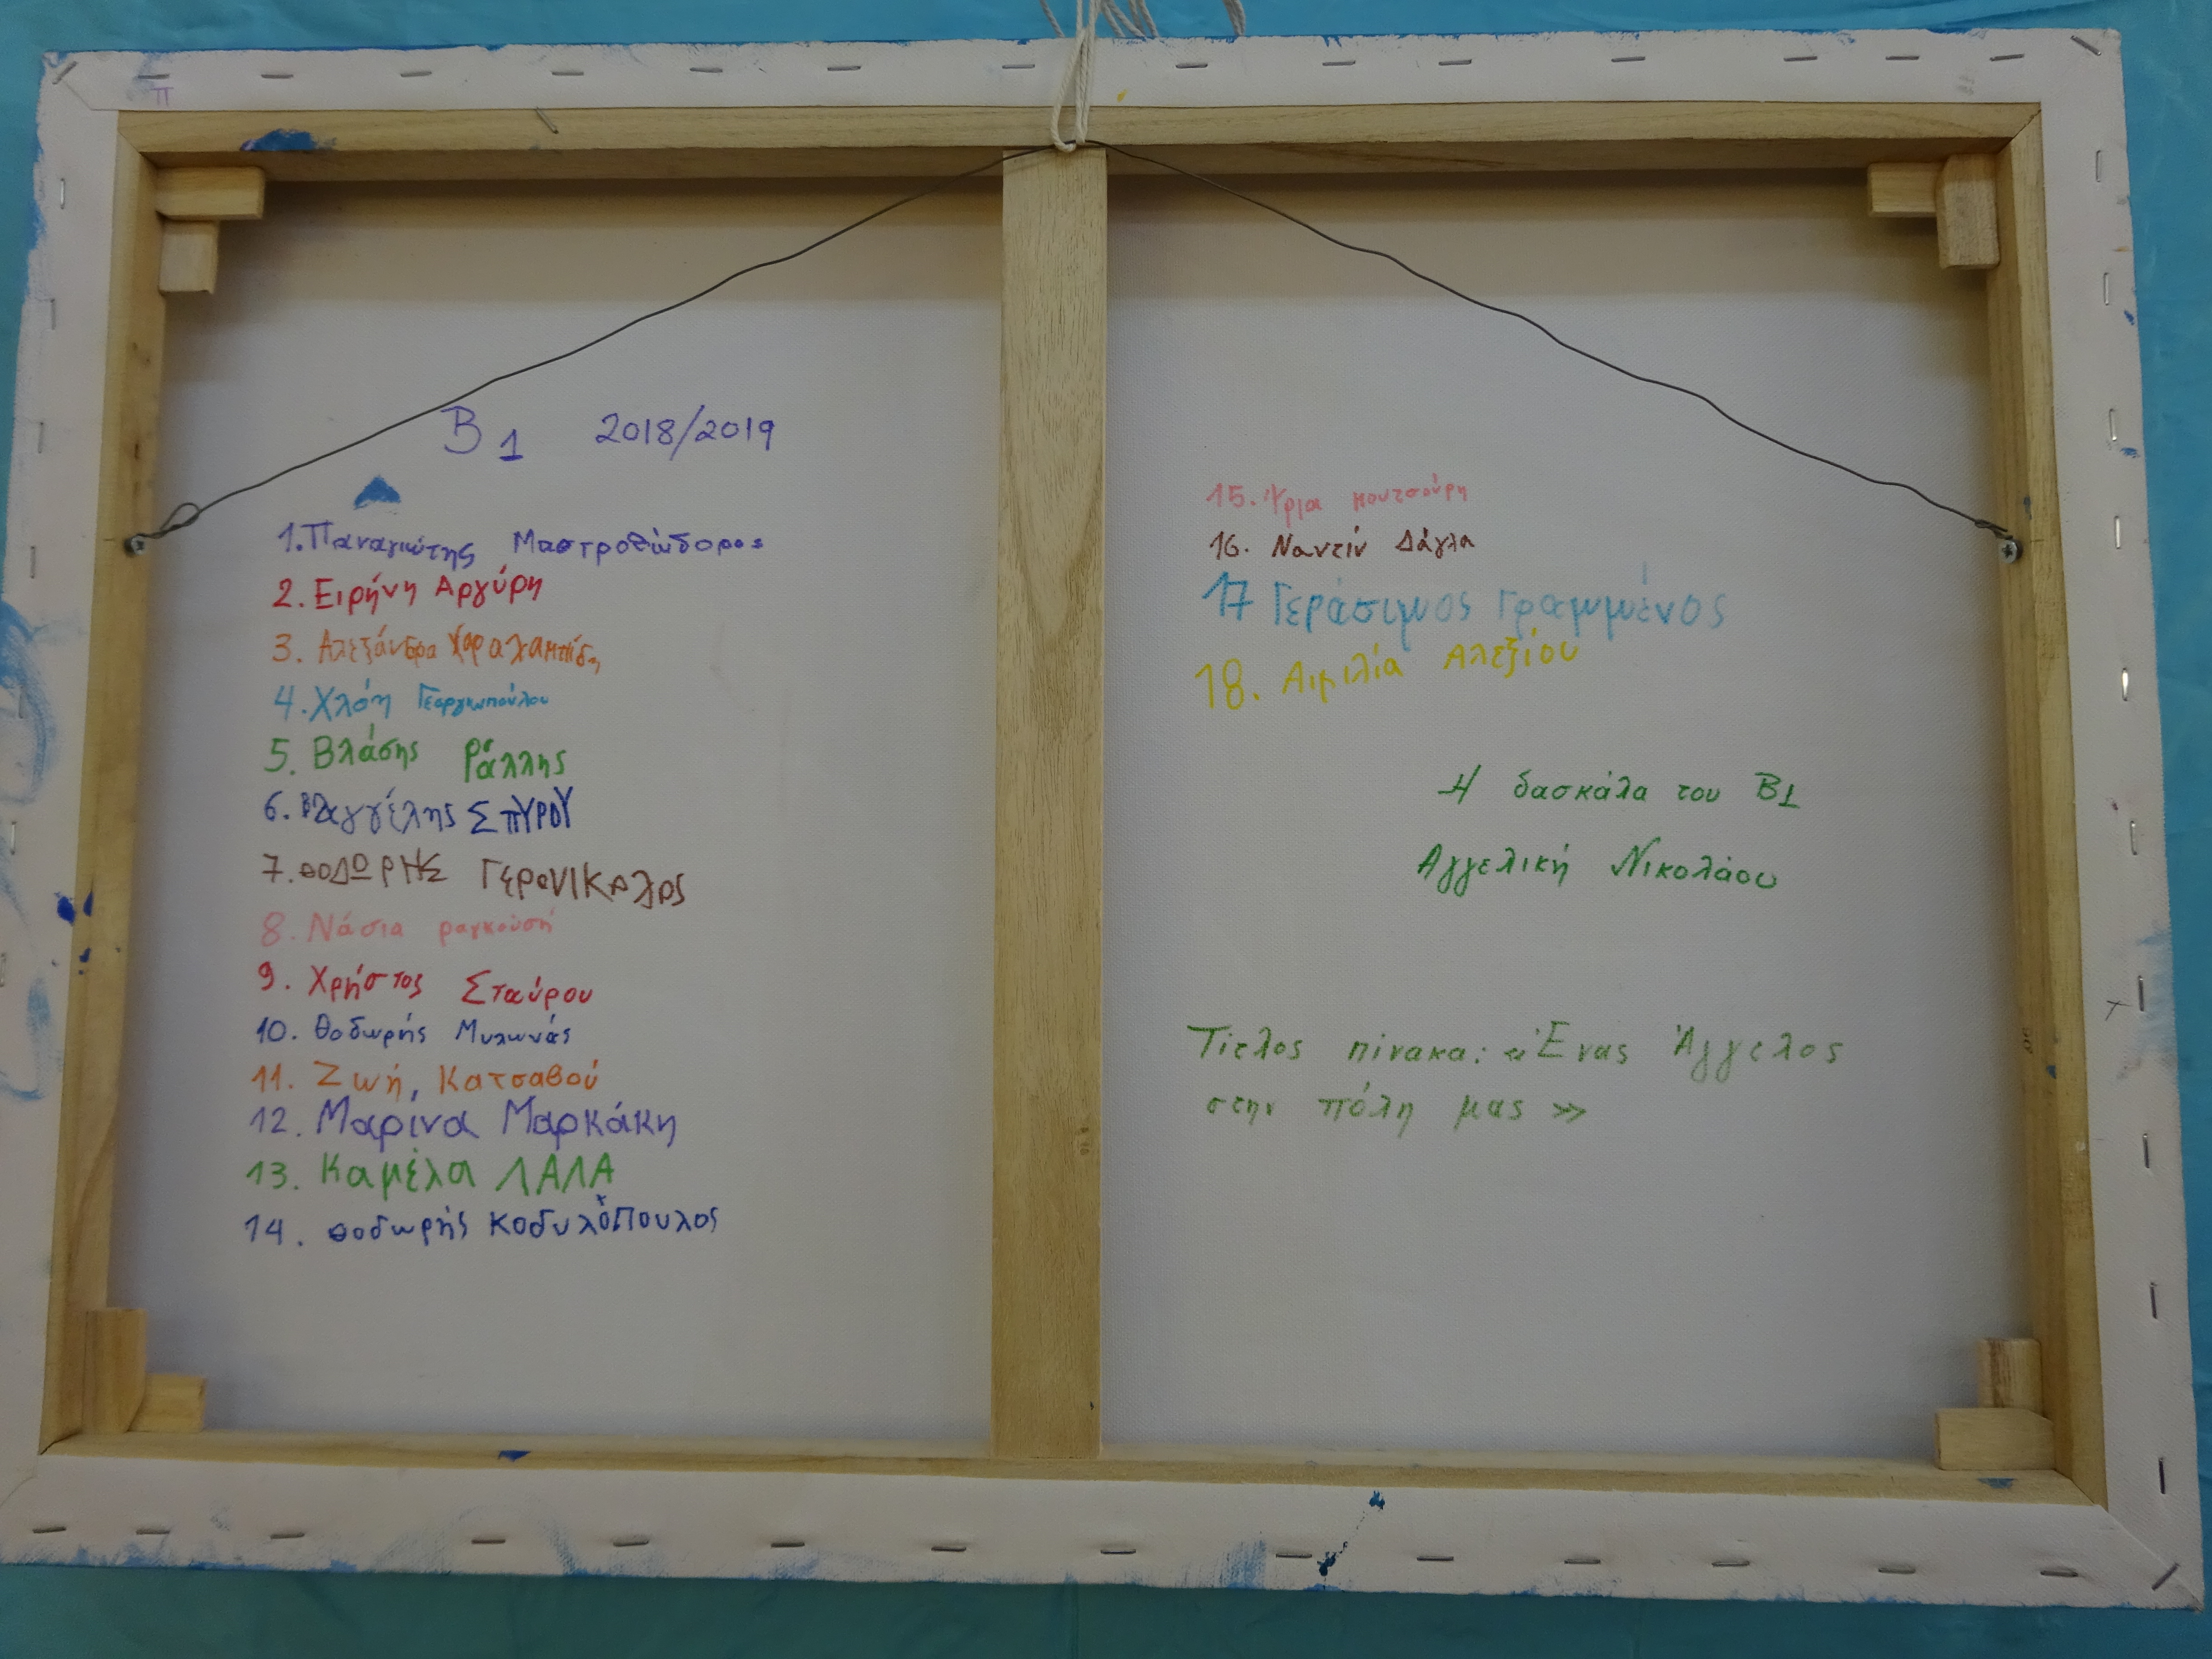 Β1 2018/2019
1. Παναγιώτης Μαστροθώδορος
2. Ειρήνη Αργύρη
3. Αλεξάνδρα
4. Χλόη Γεωργιοπούλου
5. Βλάσης Ράλλης
6. Βαγγέλης ΣΠΥΡΟΥ
7. ΘΟΔΩΡΗΣ
8. Νάσια ραγκούση
9. Χρήστος Σταύρου
10. Θοδωρής Μυλωνάς
11. Ζωή, Κατσαβού
12. Μαρίνα Μαρκάκη
13. Καμέλα ΛΑΛΑ
14. Θοδωρής Κοδυλόπουλος
15. κουτσούρη
16. Ναντίν Δάγλα
17 Γεράσιμος Γραμμένος
18. Αιμιλία Αλεξίου
Η δασκάλα του Β1
Αγγελική Νικολάου
Τίτλος πίνακα: «Ένας Άγγελος
στην πόλη μας»